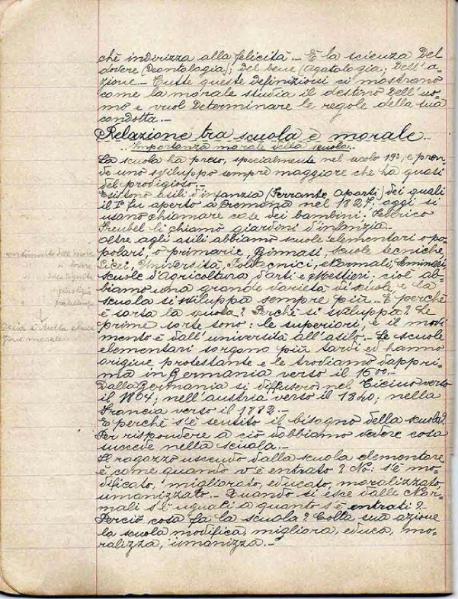 chè indirizza alla felicità - È la scienza del
dovere (Deontologia); del bene (Agatologia; dell'a-
zione - Tutte queste definizioni ci mostrano
come la morale studia il destino dell'uo-
mo e vuol determinare le regole della sua
condotta.-
Relazione tra scuola e morale.
Importanza morale della scuola.
La scuola ha preso, specialmente nel secolo 19º, e pren-
de uno sviluppo sempre maggiore che ha quasi
del prodigioso.-
Esistono asili d'infanzia (Ferrante Aporti) dei quali
il 1º fu aperto a Cremona nel 182 ; oggi si
usano chiamare case dei bambini. Federico
Froebel li chiamò giardini d'infanzia.
oltre agli asili abbiamo scuole elementari o po-
polari, o primarie; ginnasi, scuole tecniche
Licei, Università, Politecnici, Normali,
scuole d'agricoltura d'arti e Mestieri: cioè ab-
biamo una grande varietà di scuole e la
scuola si sviluppa sempre più - E perchè
è sorta la scuola? Perchè si sviluppa? Le
prime sorte sono: le superiori, e il movi-
mento è dall'università all'asilo. Le scuole
elementari sorgono più tardi ed hanno
origine protestante e le troviamo dapprima
in Germania verso il 1600.-
Dalla Germania si diffusero nel Ticino verso
il ; nell'austria verso il , nella
Francia verso il .-
E perchè s'è sentito il bisogno della scuola?
Per rispondere a ciò dobbiamo vedere cosa
succede nella scuola.
Il ragazzo uscendo dalla scuola elementare
è come quando v'è entrato? No: s'è mo-
dificato, migliorato, educato, moralizzato,
umanizzato.- Quando si esce dalle Nor-
mali s'è uguali a quanto s'è entrati?
Perciò cosa fa la scuola? Colla sua azione
la scuola modifica, migliora, educa, mo-
ralizza, umanizza.-